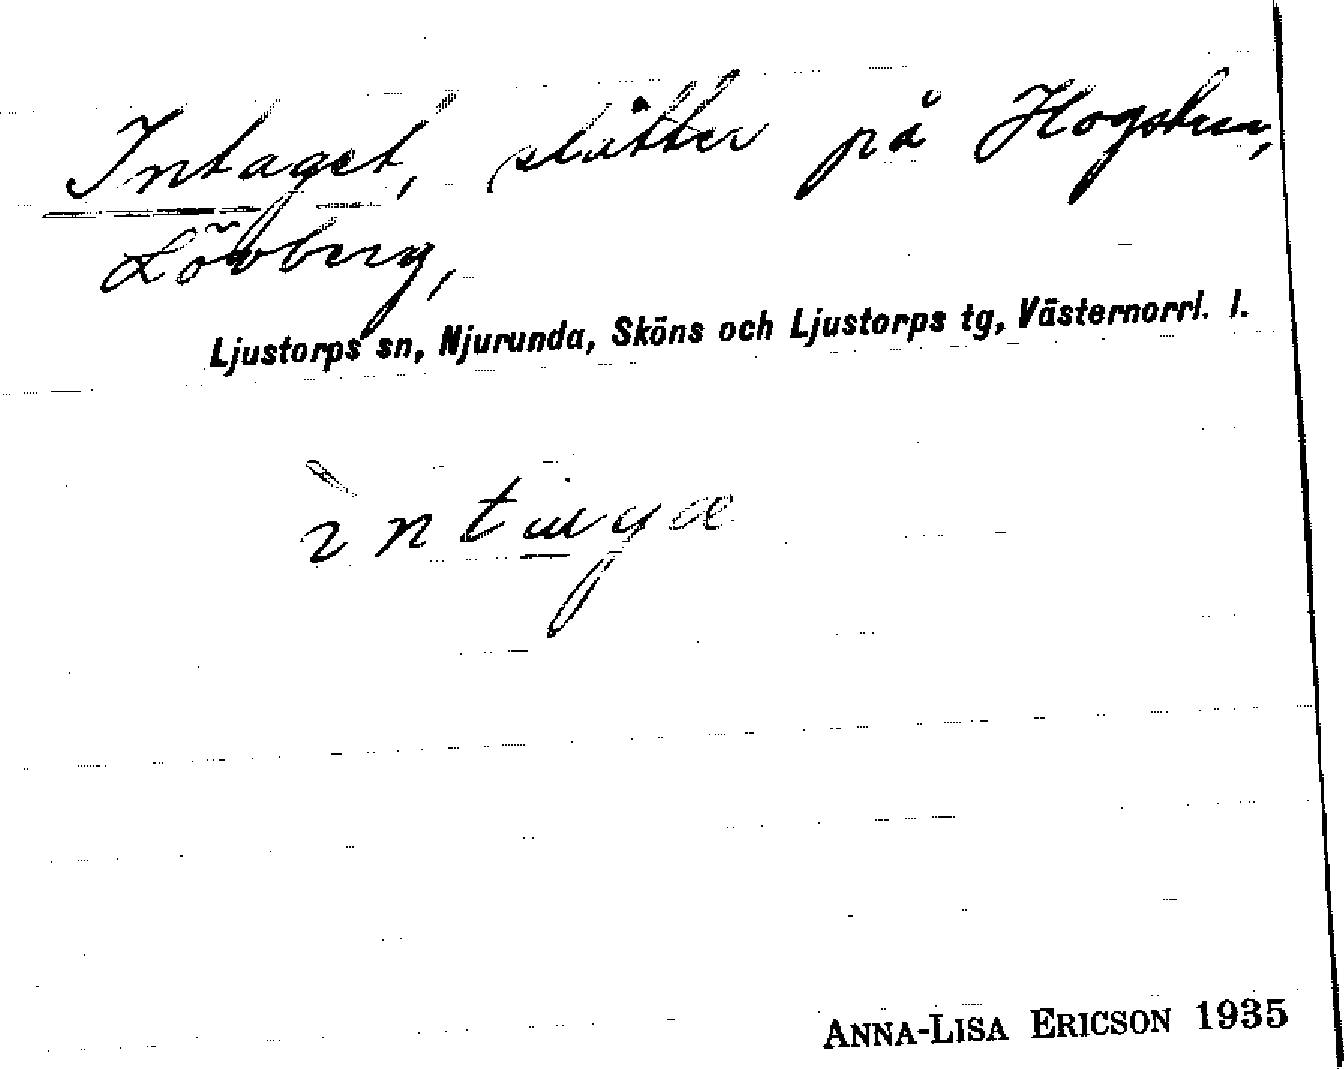 Intaget, slåtter på Hogsten,
Lövberg,
Ljustorps sn, Njurunda, Sköns och Ljustorps tg, Västernorrl. l.
ANNA-LISA ERICSON 1935